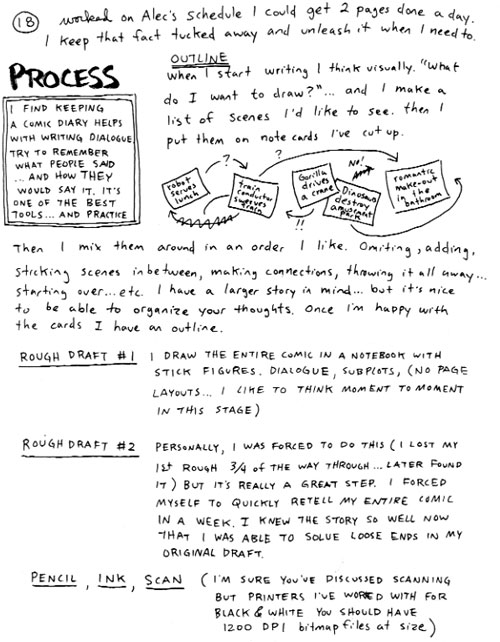 18 worked on Alec's schedule I could get 2 pages done a day.
I keep that fact tucked away and unleash it when I need to.
PROCESS
I FIND KEEPING
A COMIC DIARY HELPS
WITH WRITING DIALOGUE
TRY TO REMEMBER
WHAT PEOPLE SAID
...AND HOW THEY
WOULD SAY IT. IT'S
ONE OF THE BEST
TOOLS... AND PRACTICE
OUTLINE
when I start writing I think visually. "What
do I want to draw?"... and I make a
list of scenes I'd like to see. then I
put them on note cards I've cut up.
robot
serves
lunch
?
train
conductor
sweeps
train
?
Gorilla
drives
a crane
!!
No!
Dinosaurs
destroy
amusement
park
romantic
make-out
in the
bathroom
Then I mix them around in an order I like. Omiting, adding,
sticking scenes inbetween, making connections, throwing it all away...
starting over... etc. I have a larger story in mind... but it's nice
to be able to organize your thoughts. Once I'm happy with
the cards I have an outline.
ROUGH DRAFT #1 I DRAW THE ENTIRE COMIC IN A NOTEBOOK WITH
STICK FIGURES. DIALOGUE, SUBPLOTS, (NO PAGE
LAYOUTS... I LIKE TO THINK MOMENT TO MOMENT
IN THIS STAGE)
ROUGH DRAFT #2 PERSONALLY, I WAS FORCED TO DO THIS (I LOST MY
1st ROUGH 3/4 of THE WAY THROUGH... LATER FOUND
IT) BUT IT'S REALLY A GREAT STEP. I FORCED
MYSELF TO QUICKLY RETELL MY ENTIRE COMIC
IN A WEEK. I KNEW THE STORY SO WELL NOW
THAT I WAS ABLE TO SOLVE LOOSE ENDS IN MY
ORIGINAL DRAFT.
PENCIL, INK, SCAN (I'M SURE YOU'VE DISCUSSED SCANNING
BUT PRINTERS I'VE WORKED WITH FOR
BLACK & WHITE YOU SHOULD HAVE
1200 DPI bitmap files at size)